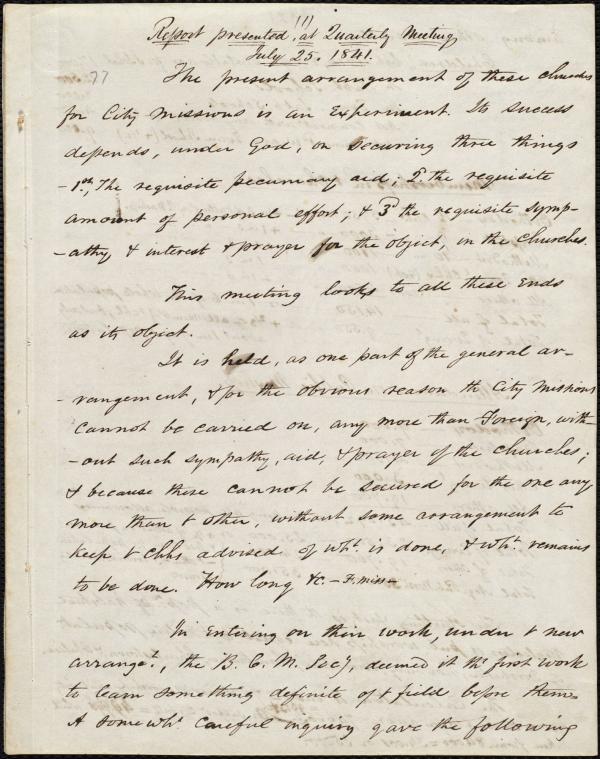 Report presented, at Quarterly Meeting,
July 25. 1841.
77
The present arrangement of these churches
for City missions is an Experiment. Its success
depends, under God, on securing three things
- 1st, The requisite pecuniary aid; 2d the requisite
amount of personal effort; & 3d the requisite symp-
-athy, & interest & prayer for the object, in the churches.
This meeting looks to all these Ends
as its object.
It is held, as one part of the general ar-
-rangement, & for the obvious reason th City Missions
cannot be carried on, any more than Foreign, with-
-out such sympathy, aid, & prayer of the churches;
& because these cannot be secured for the one any
more than t other, without some arrangement to
keep t chhs advised of wht. is done, & wht. remains
to be done. How long &c. - F. miss -
In Entering on their work, under t new
arranget., the B. C. M. Socy, deemed it ths first work
to learn something definite of t field before them.
A some wht. careful inquiry gave the following